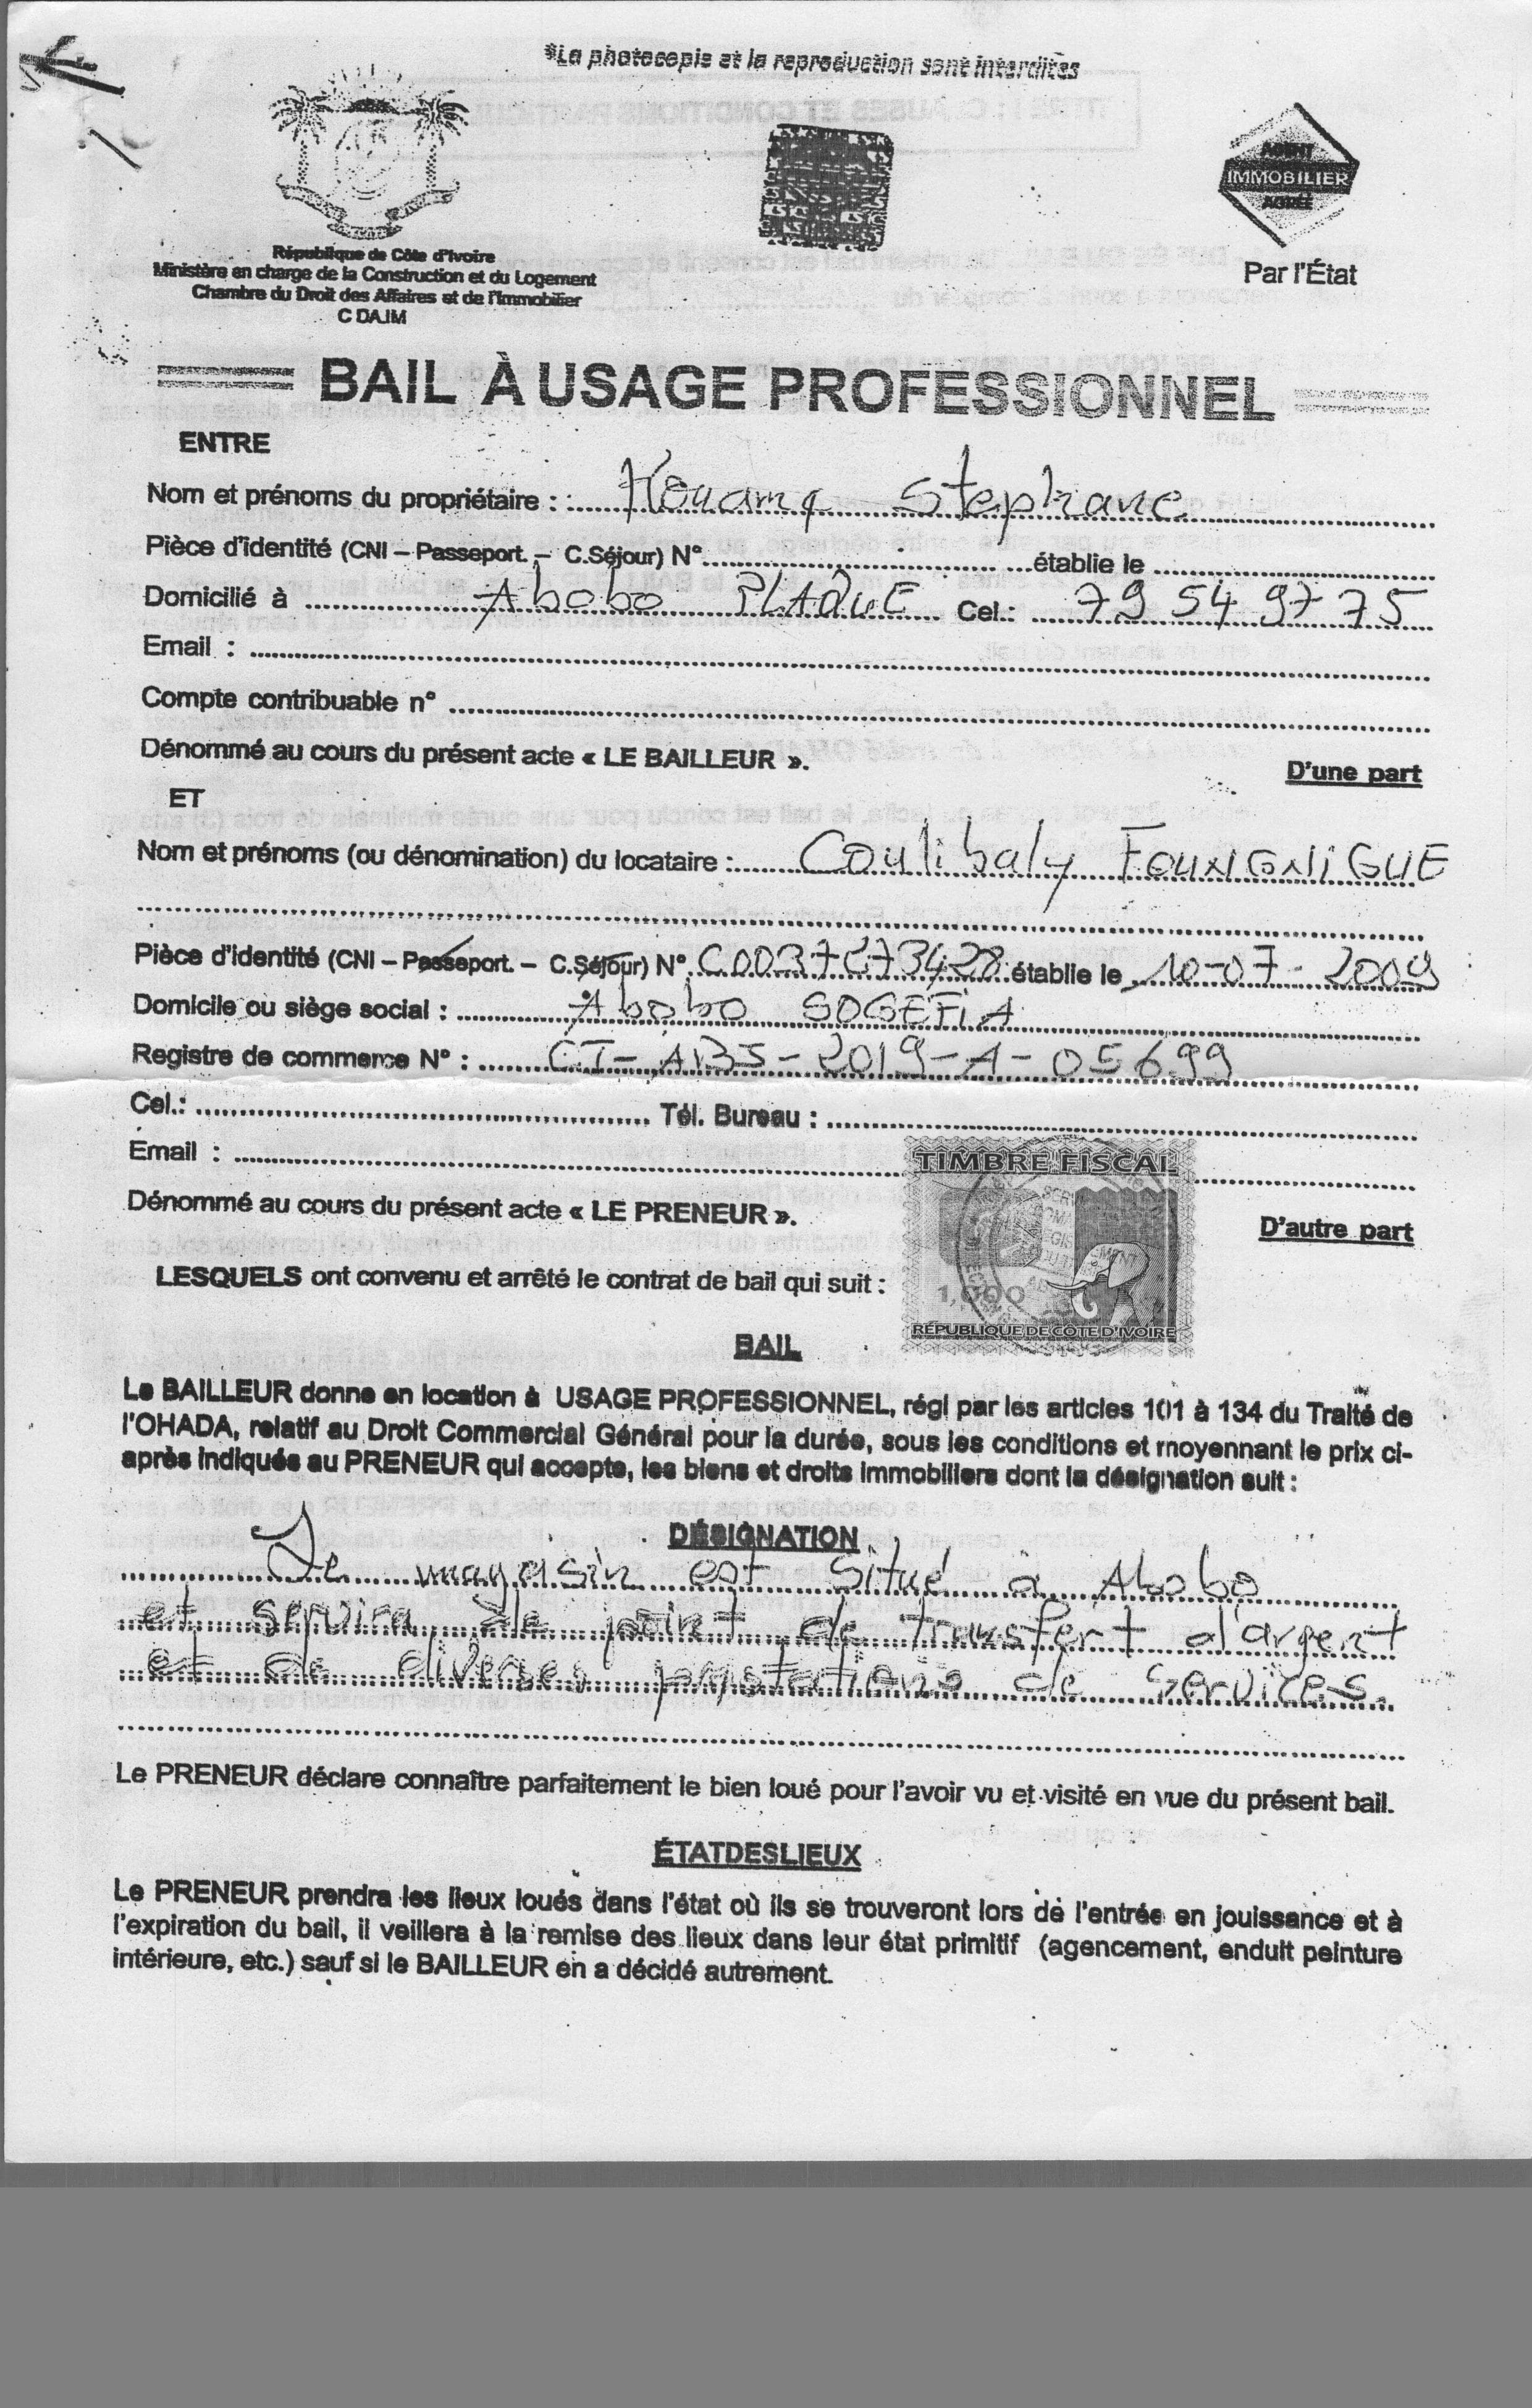 *La photocopie et la reproduction sont interdites
AGENT
IMMOBILIER
AGRÉÉ
Par l'État
République de Côte d'Ivoire
Ministère en charge de la Construction et du Logement
Chambre du Droit des Affaires et de l'Immobilier
C DAJM
BAIL À USAGE PROFESSIONNEL
ENTRE
Nom et prénoms du propriétaire : : Stephane
Pièce d'identité (CNI – Passeport. – C.Séjour) N° établie le
Domicilié à Abobo PLAQUE Cel.: 79 54 97 75
Email :
Compte contribuable n°
Dénommé au cours du présent acte « LE BAILLEUR ».
D'une part
ET
Nom et prénoms (ou dénomination) du locataire : Coulibaly FOUNGNIGUE
Pièce d'identité (CNI – Passeport. – C.Séjour) N° établie le 10-07-2009
Domicile ou siège social : Abobo SOGEFIA
Registre de commerce N° : CI-ABJ-2019-A-05699
Cel.: Tél. Bureau :
Email :
TIMBRE FISCAL
1,000
RÉPUBLIQUE DE CÔTE D'IVOIRE
Dénommé au cours du présent acte « LE PRENEUR ».
D'autre part
LESQUELS ont convenu et arrêté le contrat de bail qui suit :
BAIL
Le BAILLEUR donne en location à USAGE PROFESSIONNEL, régi par les articles 101 à 134 du Traité de
l'OHADA, relatif au Droit Commercial Général pour la durée, sous les conditions et moyennant le prix ci-
après indiqués au PRENEUR qui accepte, les biens et droits immobiliers dont la désignation suit :
DÉSIGNATION
Le magasin est Situé à Abobo
et servira de point de transfert d'argent
et de diverses prestations de Services.
Le PRENEUR déclare connaître parfaitement le bien loué pour l'avoir vu et visité en vue du présent bail.
ÉTATDESLIEUX
Le PRENEUR prendra les lieux loués dans l'état où ils se trouveront lors de l'entrée en jouissance et à
l'expiration du bail, il veillera à la remise des lieux dans leur état primitif (agencement, enduit peinture
intérieure, etc.) sauf si le BAILLEUR en a décidé autrement.